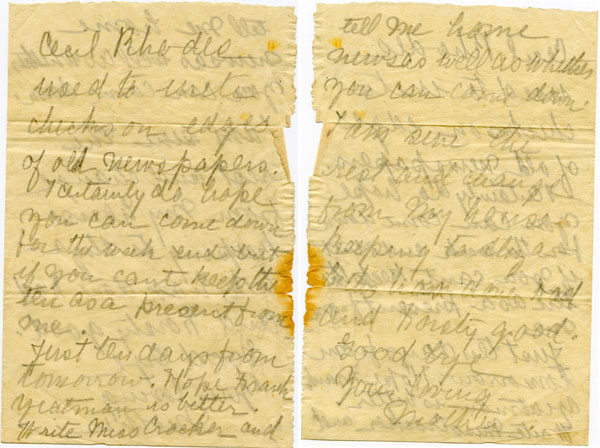 Cecil Rhodes
used to write
checks on edges
of old newspapers.
I certainly do hope
you can come down
for the week end but
if you cant keep the
ten as a present from
me.
Just ten days from
tomorrow. Hope Frank
Yeatman is better.
Write Miss Crocker and
tell me home
news as well as whether
you can come down.
I am sure the
rest and change
from my house-
keeping
and good.
Good bye
Your loving
Mother